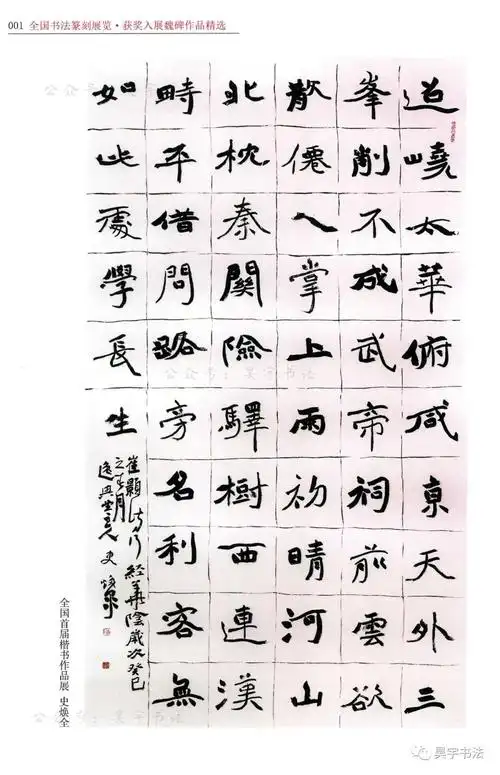 001 全国书法篆刻展览·获奖入展魏碑作品精选
迢嶢太華俯咸京天外三
峯削不成武帝祠前雲欲
散僊人掌上雨初晴河山
北枕秦關險驛樹西連漢
畤平借問路旁名利客無
如此處學長生
崔顥詩行經華陰歲次癸巳
之月
逸興堂主人史焕全
全国首届楷书作品展 史焕全
公众号：昊宇书法
公众号：昊宇书法
昊宇书法